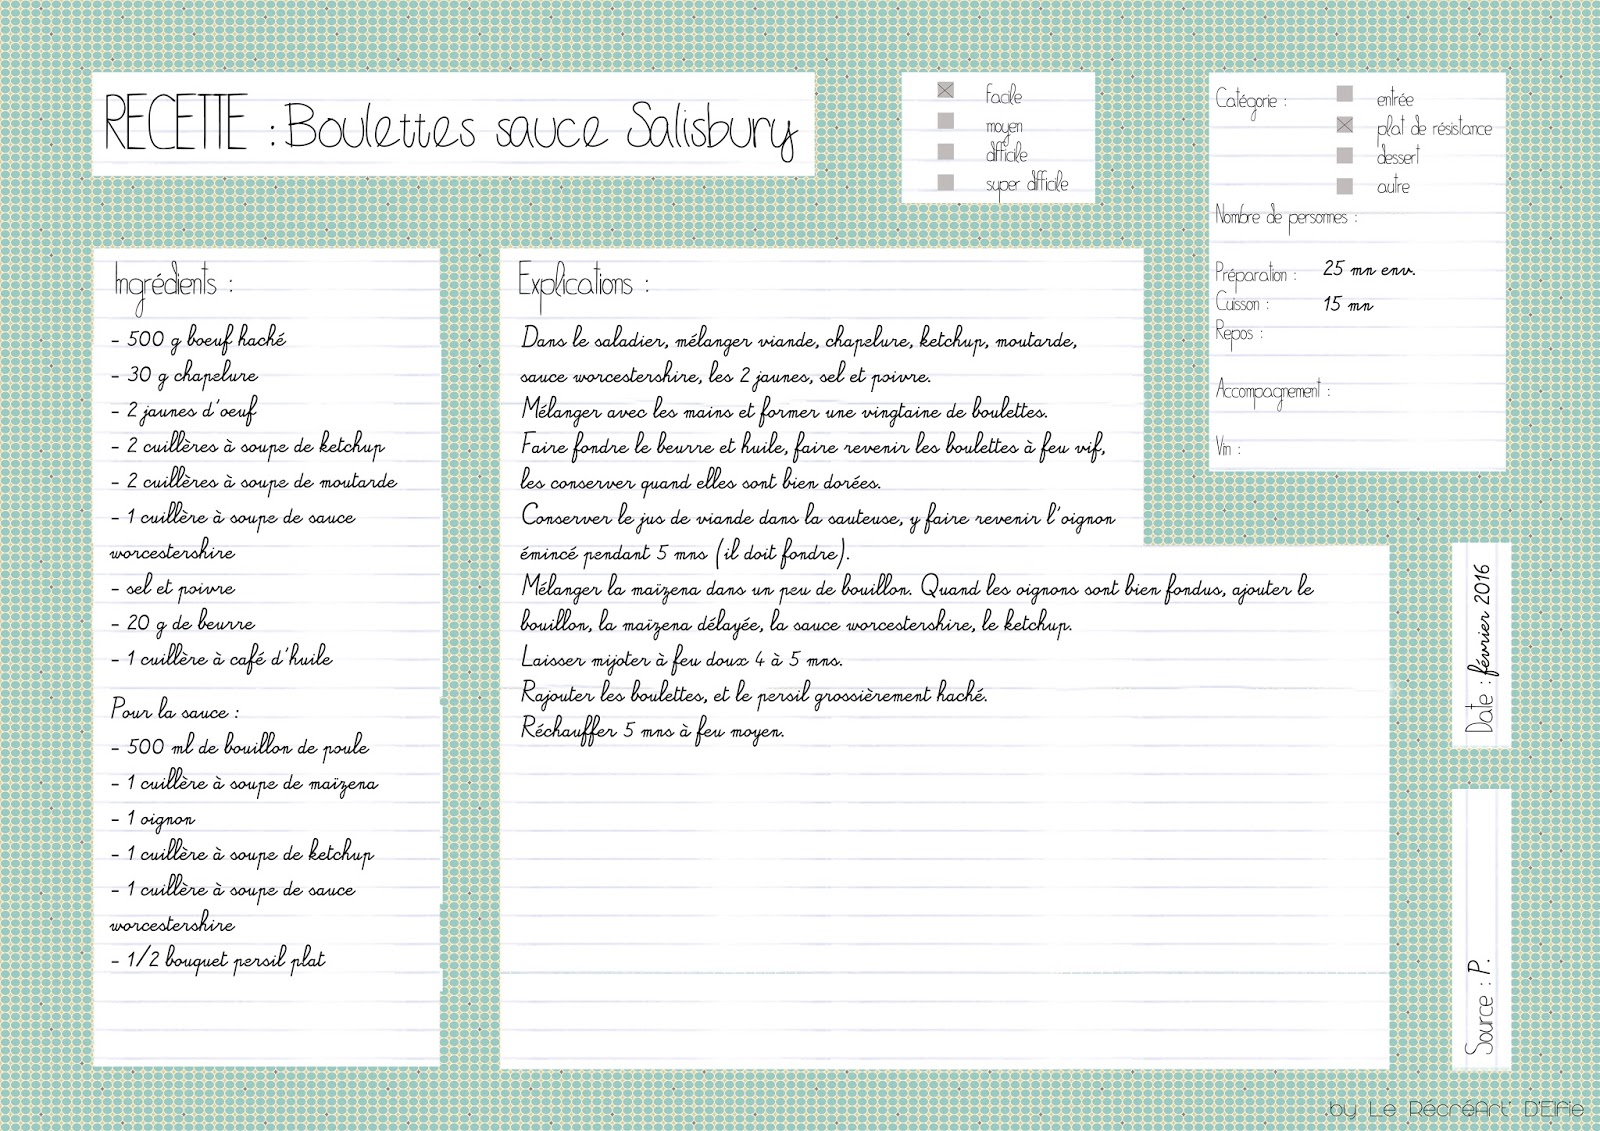 RECETTE : Boulettes sauce Salisbury
facile
moyen
difficile
super difficile
Catégorie :
entrée
plat de résistance
dessert
autre
Nombre de personnes :
Préparation : 25 mn env.
Cuisson : 15 mn
Repos :
Accompagnement :
Vin :
Ingrédients :
- 500 g boeuf haché
- 30 g chapelure
- 2 jaunes d'oeuf
- 2 cuillères à soupe de ketchup
- 2 cuillères à soupe de moutarde
- 1 cuillère à soupe de sauce
worcestershire
- sel et poivre
- 20 g de beurre
- 1 cuillère à café d'huile
Pour la sauce :
- 500 ml de bouillon de poule
- 1 cuillère à soupe de maïzena
- 1 oignon
- 1 cuillère à soupe de ketchup
- 1 cuillère à soupe de sauce
worcestershire
- 1/2 bouquet persil plat
Explications :
Dans le saladier, mélanger viande, chapelure, ketchup, moutarde,
sauce worcestershire, les 2 jaunes, sel et poivre.
Mélanger avec les mains et former une vingtaine de boulettes.
Faire fondre le beurre et huile, faire revenir les boulettes à feu vif,
les conserver quand elles sont bien dorées.
Conserver le jus de viande dans la sauteuse, y faire revenir l'oignon
émincé pendant 5 mns (il doit fondre).
Mélanger la maïzena dans un peu de bouillon. Quand les oignons sont bien fondus, ajouter le
bouillon, la maïzena délayée, la sauce worcestershire, le ketchup.
Laisser mijoter à feu doux 4 à 5 mns.
Rajouter les boulettes, et le persil grossièrement haché.
Réchauffer 5 mns à feu moyen.
Date : février 2016
Source : P.
.by Le RécréArt' D'Elfie